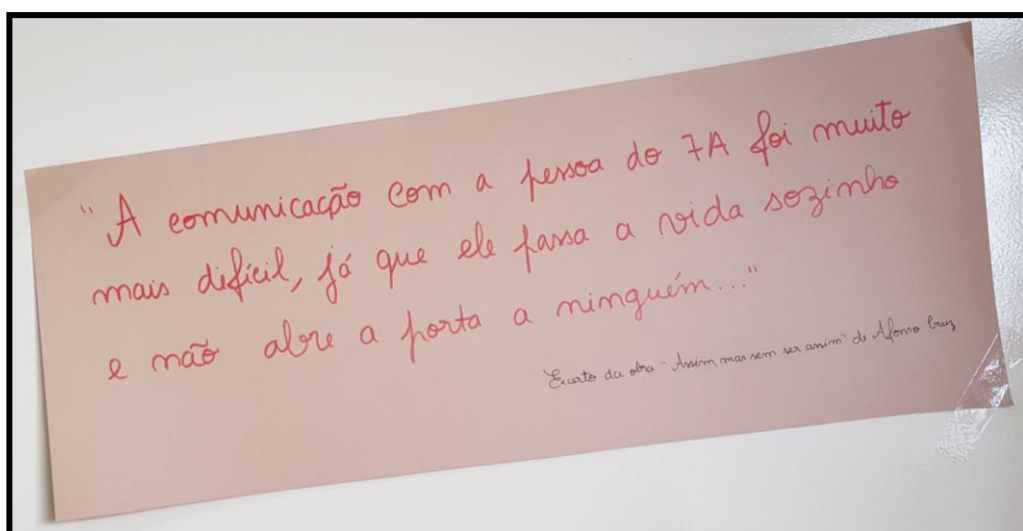 "A comunicação com a pessoa do 7A foi muito
mais difícil, já que ele passa a vida sozinho
e não abre a porta a ninguém..."
Excerto da obra "Assim, mas sem ser assim" de Afonso Cruz